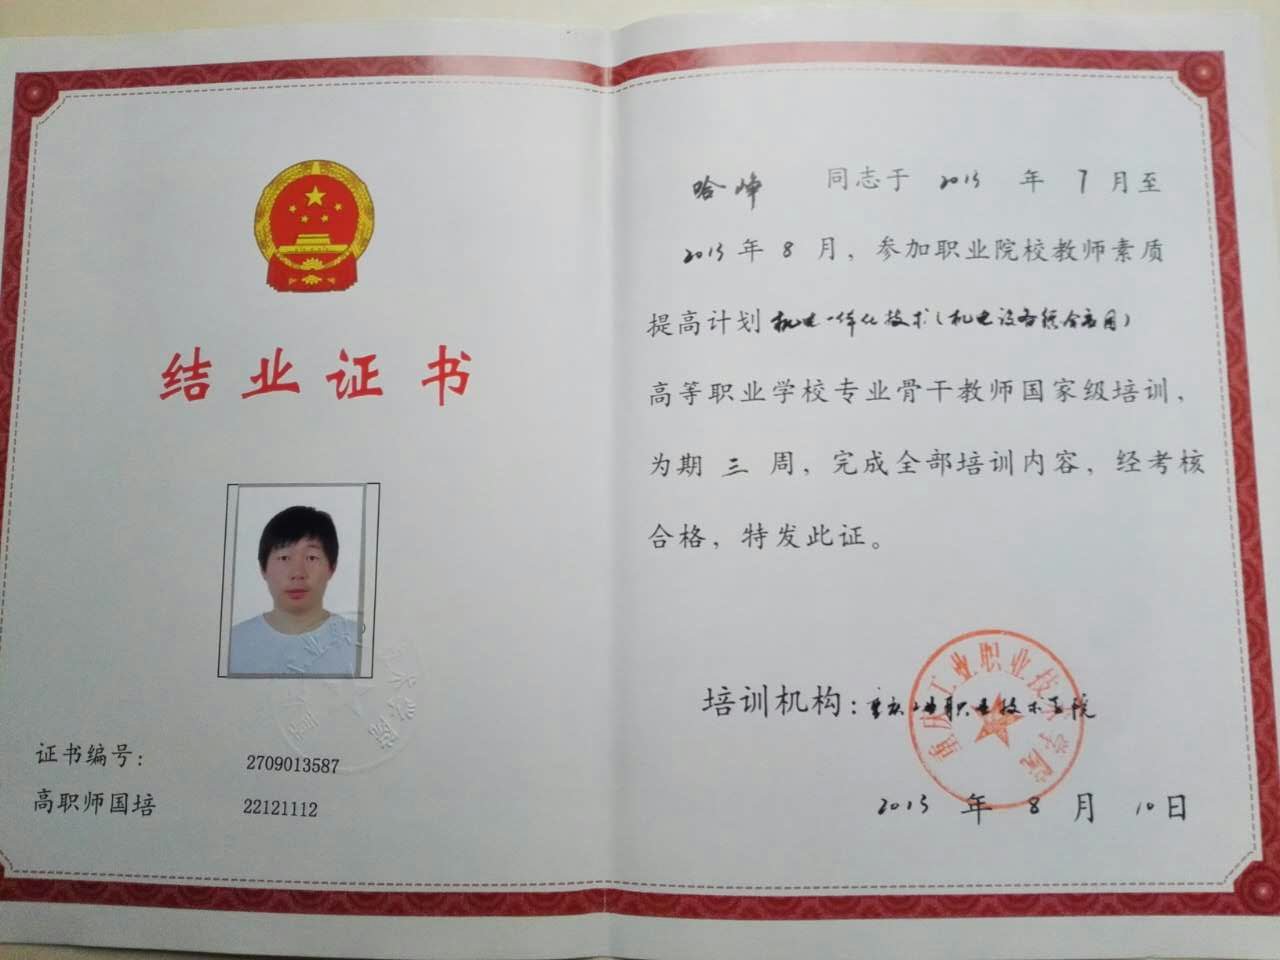 结业证书
证书编号： 2709013587
高职师国培 22121112
哈峰 同志于 2013 年 7 月至
2013 年 8 月，参加职业院校教师素质
提高计划 机电一体化技术（机电设备综合应用）
高等职业学校专业骨干教师国家级培训，
为期 三 周，完成全部培训内容，经考核
合格，特发此证。
培训机构：重庆工业职业技术学院
重庆工业职业技术学院
2013 年 8 月 10 日